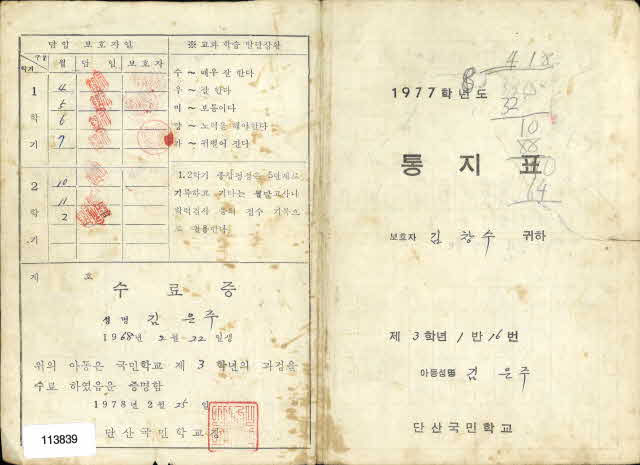 담임 보호자인
※ 교과 학습 발달상황
구분
학기
월
담 임
보호자
1
학
기
4
5
6
7
수 ~ 매우 잘 한다
우 ~ 잘 한다
미 ~ 보통이다
양 ~ 노력을 해야한다
가 ~ 뒤떨어 진다
2
학
기
10
11
2
1.2학기 종합성적은 5단계로
기록하고 기타는 월말고사나
학력검사 등의 점수 기록으
로 활용한다
제 호
수 료 증
성명 김은주
1968년 2월 22일생
위의 아동은 국민학교 제 3 학년의 과정을
수료 하였음을 증명함
1978년 2월 25일
단산국민학교장
113839
1977학년도
8
418
32
10
88
64
통 지 표
보호자 김창수 귀하
제 3학년 1반 16번
아동성명 김은주
단산국민학교